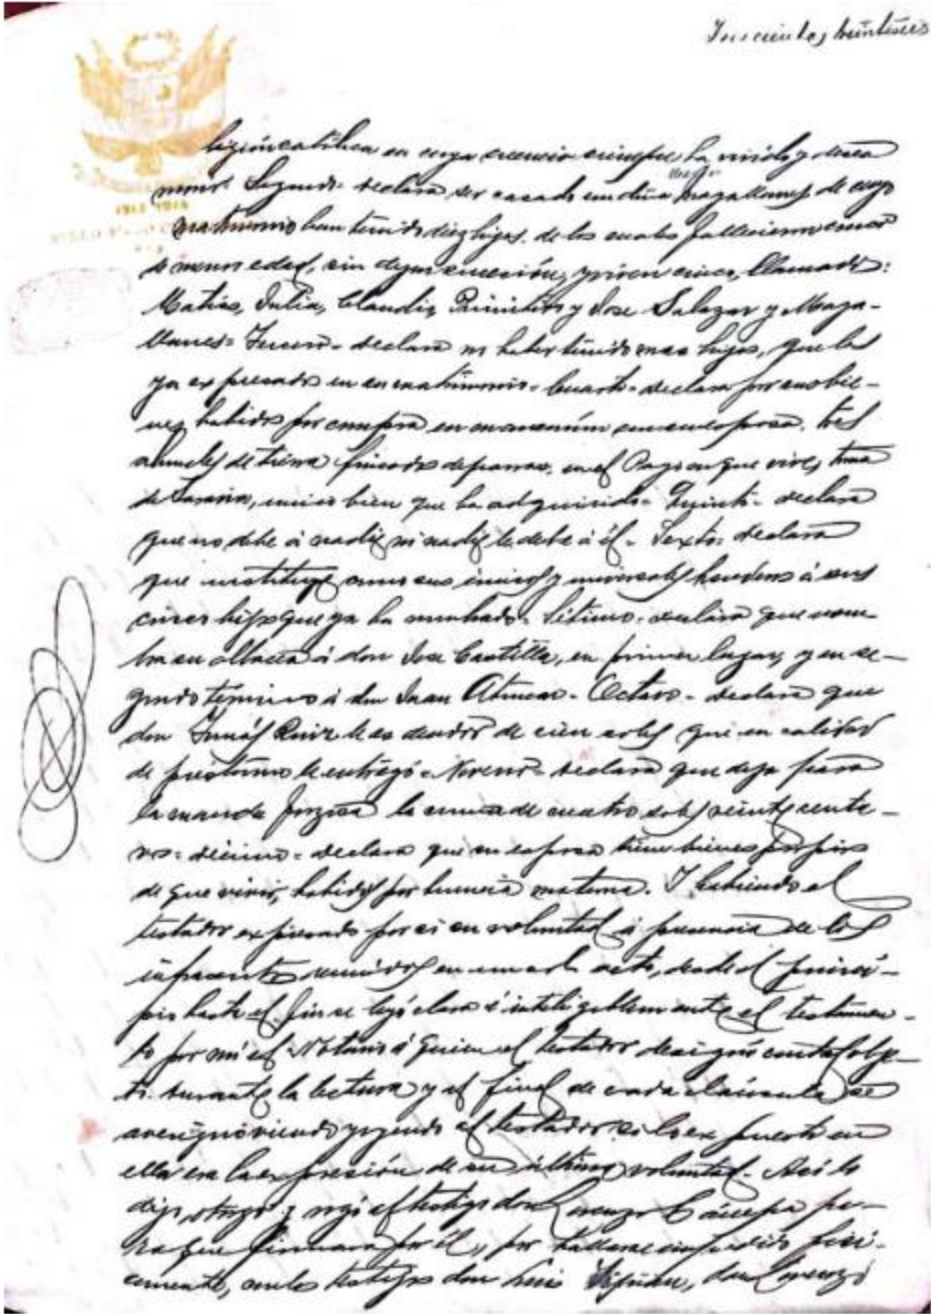 ligión católica en cuya creencia siempre ha vivido y desea
morir. Segundo = declara ser casado con doña Magallanes de cuyo
matrimonio han tenido diez hijos, de los cuales fallecieron cinco
de menor edad, sin dejar sucesión, y viven cinco, llamados:
Matías, Julia, Claudia, Primitivo y José Salazar y Maga-
llanes = Tercero = declara no haber tenido mas hijos, que los
ya expresados en su matrimonio = Cuarto = declara por sus bie-
nes, habidos por compra en mancomún con su esposa, tres
de tierra fincados de parras, en el Pago en que vive,
único bien que ha adquirido = Quinto = declara
que no debe á nadie, ni nadie le debe á él = Sexto = declara
que instituye como sus únicos y universales herederos á sus
cinco hijos que ya ha nombrado = Sétimo = declara que nom-
bra su albacea á don José Castilla, en primer lugar, y en se-
gundo término á don Juan = Octavo = declara que
don Tomás Ruiz le es deudor de cien soles que en calidad
de préstamo le entregó = Noveno = declara que deja para
la manda forzosa la suma de cuatro soles veinte centa-
vos = décimo = declara que su esposa tiene bienes propios
de que vivir, habidos por herencia materna. Y habiendo el
testador expresado por si su voluntad á presencia de los
infrascritos reunidos en un solo acto, desde el princi-
pio hasta el fin se leyó clara é inteligiblemente el testamen-
to por mí el Notario á quien el testador designó con tal obje-
to. durante la lectura y al final de cada cláusula se
averiguó viendo y oyendo al testador si lo expuesto en
ella era la expresión de su última voluntad. Así lo
dijo, otorgó y rogó al testigo don Lorenzo pa-
ra que firmara por él, por hallarse impedido físi-
camente, con los testigos don Luis don Lorenzo